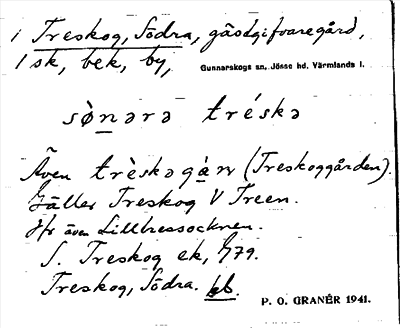 i Treskog, Södra, gästgifvaregård,
1 sk, bek, by,
Gunnarskogs sn, Jösse hd. Värmlands l.
sò̱nərə tréskə
Även trèskəgàṇ (Treskoggården).
Gäller Treskog V Treen.
Jfr även
S. Treskog ek, G79.
Treskog, Södra. kbl.
P. O. GRANÉR 1941.